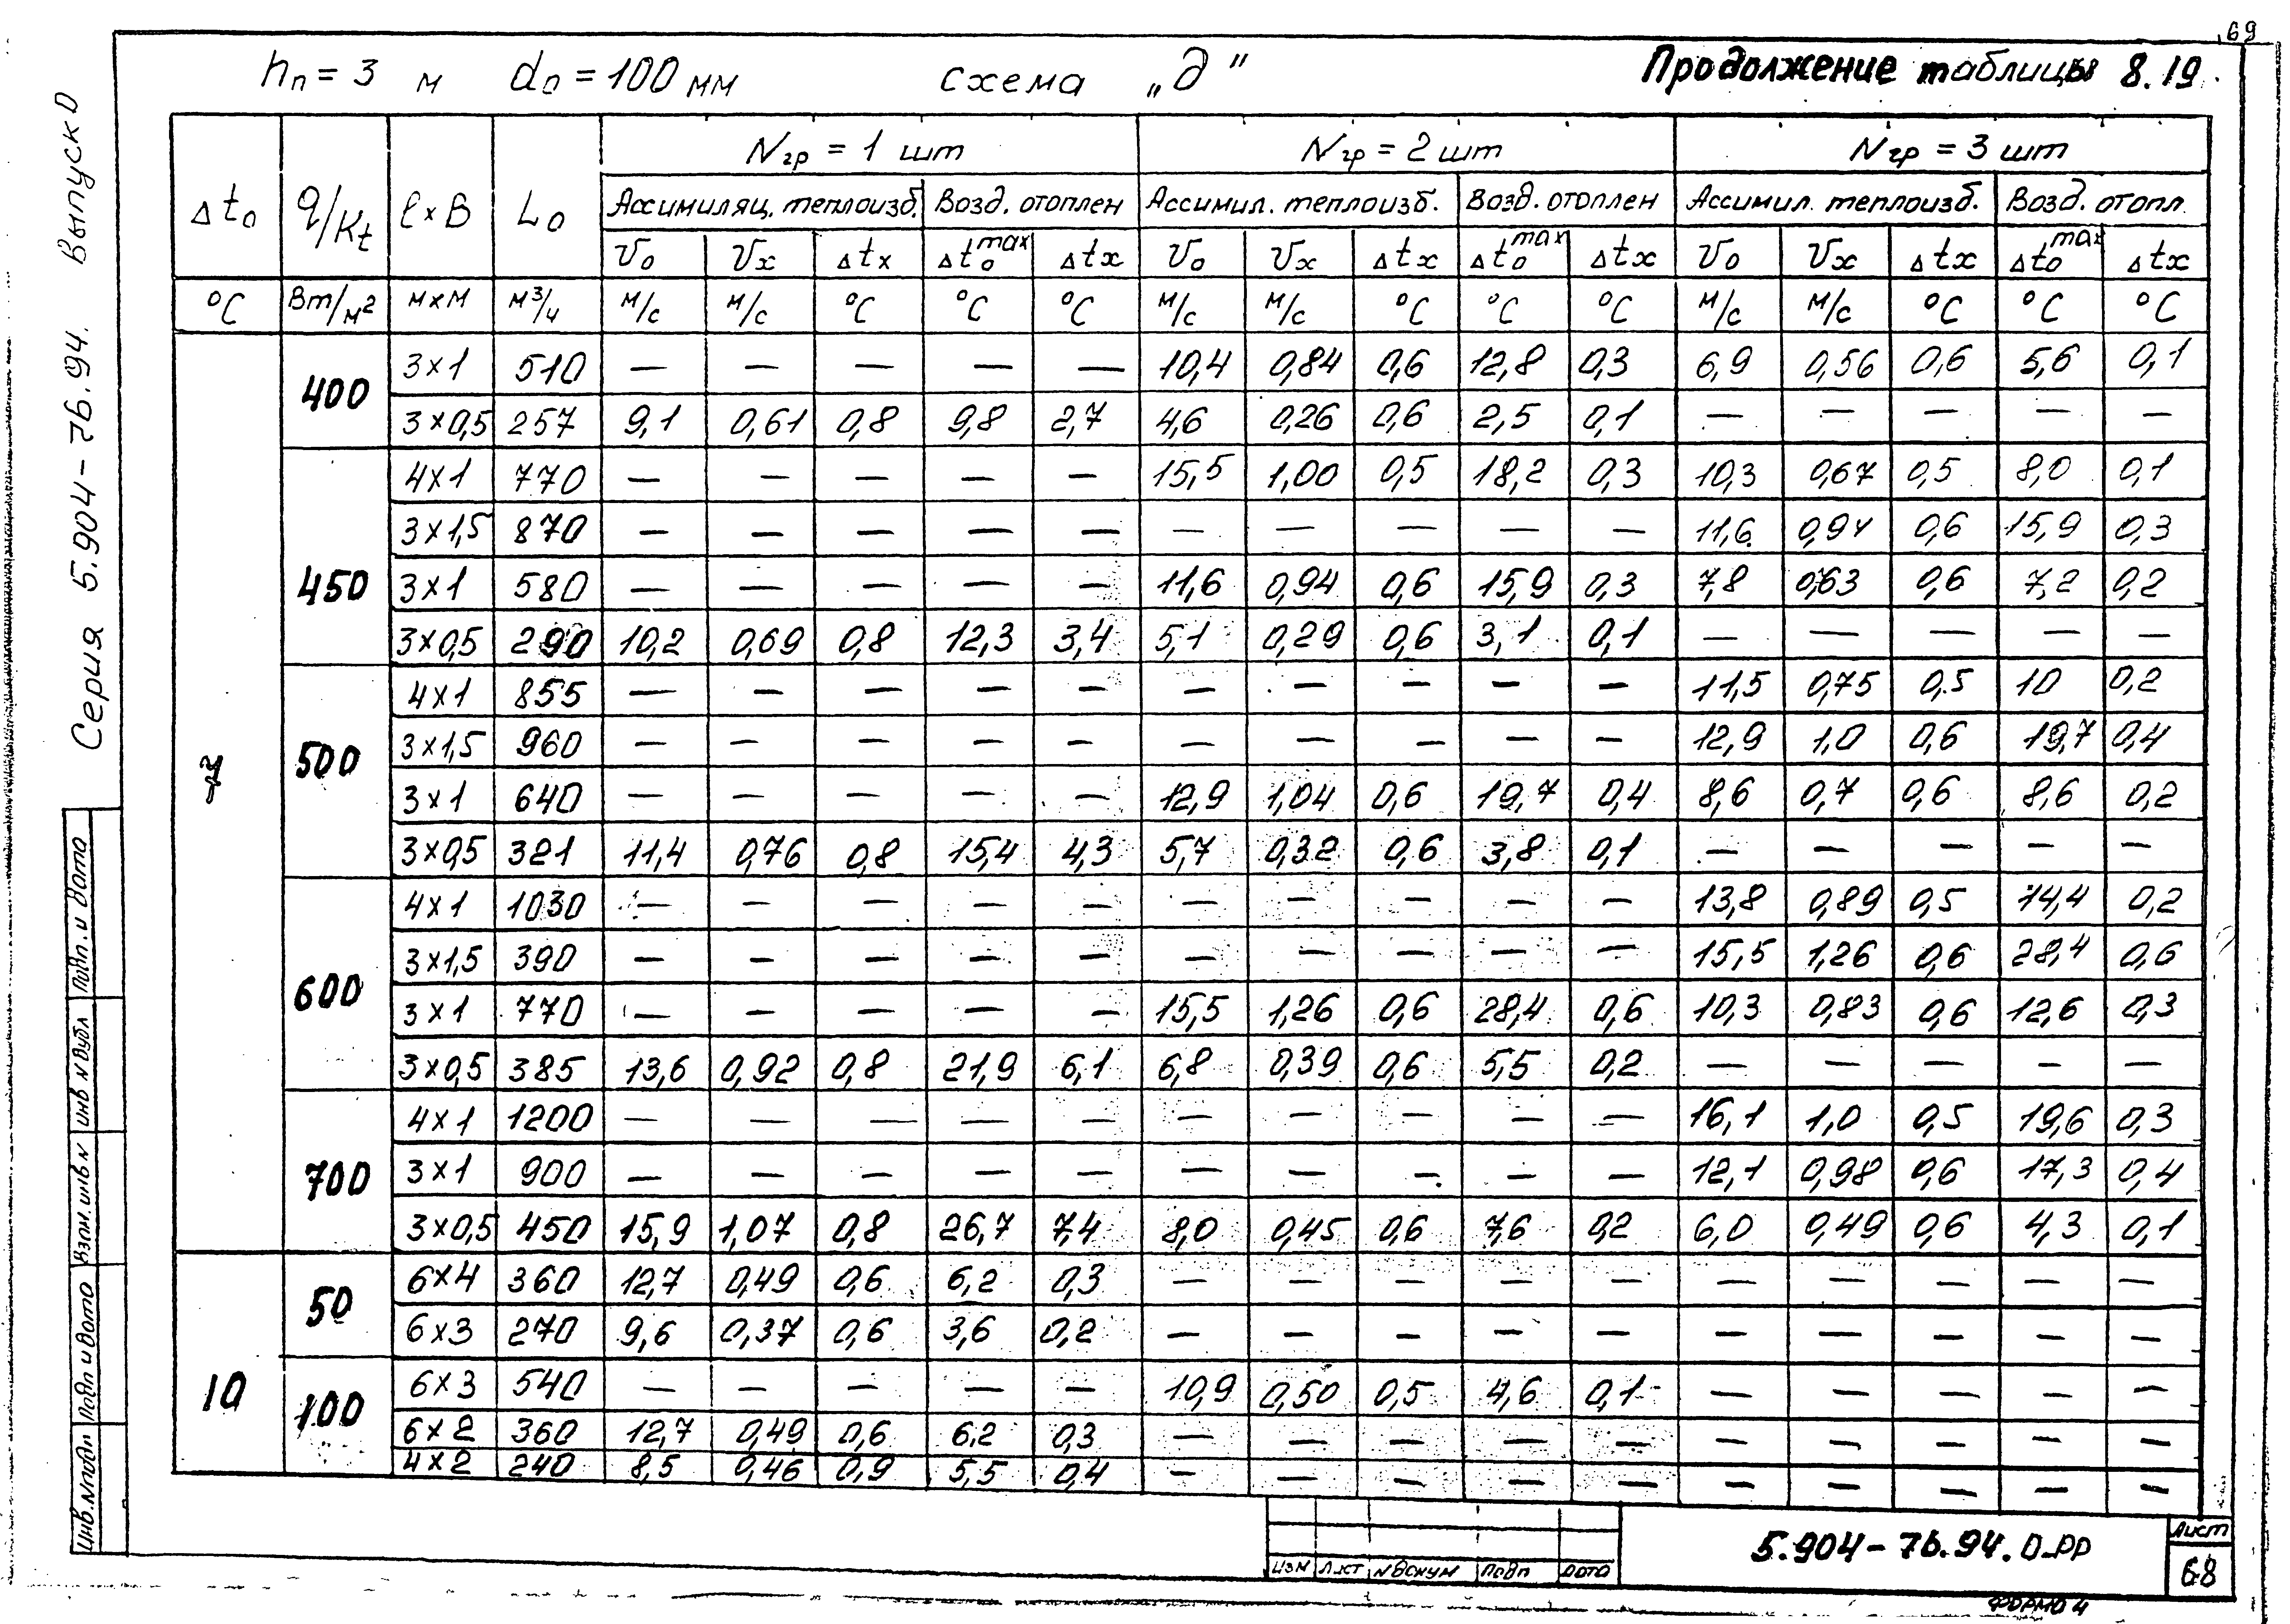 69
hп = 3 м dо = 100 мм схема „д” Продолжение таблицы 8.19.
Серия 5.904-76.94. Выпуск 0
Δtо q/Kt ℓ×B Lо Nгр = 1 шт Nгр = 2 шт Nгр = 3 шт
Ассимиляц. теплоизб. Возд. отоплен Ассимил. теплоизб. Возд. отоплен Ассимил. теплоизб. Возд. отопл.
Vо Vx Δtx Δtоmax Δtx Vо Vx Δtx Δtоmax Δtx Vо Vx Δtx Δtоmax Δtx
°C Вт/м² м×м м³/ч м/с м/с °C °C °C м/с м/с °C °C °C м/с м/с °C °C °C
400 3×1 510 — — — — — 10,4 0,84 0,6 12,8 0,3 6,9 0,56 0,6 5,6 0,1
3×0,5 257 9,1 0,61 0,8 9,8 2,7 4,6 0,26 0,6 2,5 0,1 — — — — —
450 4×1 770 — — — — — 15,5 1,00 0,5 18,2 0,3 10,3 0,67 0,5 8,0 0,1
3×1,5 870 — — — — — — — — — — 11,6 0,94 0,6 15,9 0,3
3×1 580 — — — — — 11,6 0,94 0,6 15,9 0,3 7,8 0,63 0,6 7,2 0,2
3×0,5 290 10,2 0,69 0,8 12,3 3,4 5,1 0,29 0,6 3,1 0,1 — — — — —
500 4×1 855 — — — — — — — — — — 11,5 0,75 0,5 10 0,2
3×1,5 960 — — — — — — — — — — 12,9 1,0 0,6 19,7 0,4
3×1 640 — — — — — 12,9 1,04 0,6 19,7 0,4 8,6 0,7 0,6 8,6 0,2
3×0,5 321 11,4 0,76 0,8 15,4 4,3 5,7 0,32 0,6 3,8 0,1 — — — — —
600 4×1 1030 — — — — — — — — — — 13,8 0,89 0,5 14,4 0,2
3×1,5 390 — — — — — — — — — — 15,5 1,26 0,6 28,4 0,6
3×1 770 — — — — — 15,5 1,26 0,6 28,4 0,6 10,3 0,83 0,6 12,6 0,3
3×0,5 385 13,6 0,92 0,8 21,9 6,1 6,8 0,39 0,6 5,5 0,2 — — — — —
700 4×1 1200 — — — — — — — — — — 16,1 1,0 0,5 19,6 0,3
3×1 900 — — — — — — — — — — 12,1 0,98 0,6 17,3 0,4
3×0,5 450 15,9 1,07 0,8 26,7 7,4 8,0 0,45 0,6 7,6 0,2 6,0 0,49 0,6 4,3 0,1
10 50 6×4 360 12,7 0,49 0,6 6,2 0,3 — — — — — — — — — —
6×3 270 9,6 0,37 0,6 3,6 0,2 — — — — — — — — — —
100 6×3 540 — — — — — 10,9 0,50 0,5 4,6 0,1 — — — — —
6×2 360 12,7 0,49 0,6 6,2 0,3 — — — — — — — — — —
4×2 240 8,5 0,46 0,9 5,5 0,4 — — — — — — — — — —
Инв.N подп Подп и дата Взам. инв N инв N дубл Подп. и дата
изм лист N докум подп дата
5.904-76.94.0_рр
Лист
68
формо 4